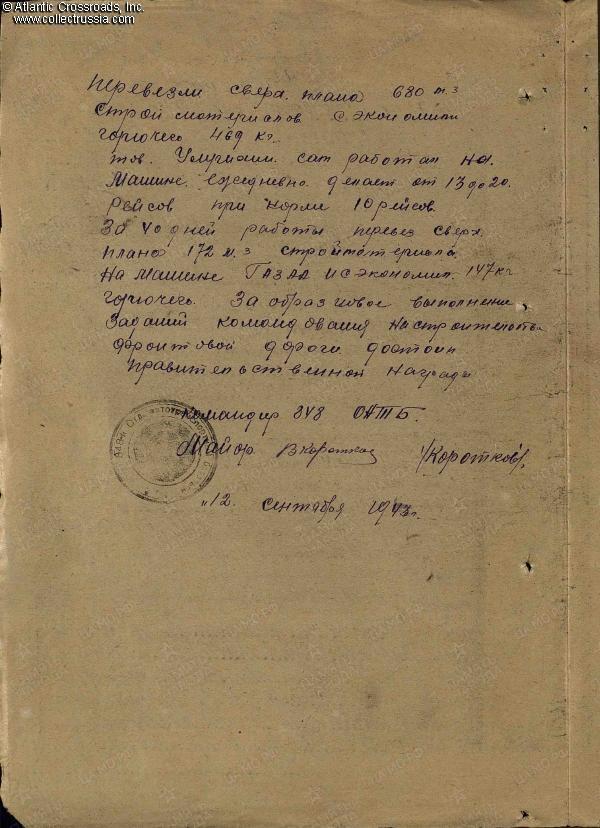 © Atlantic Crossroads, Inc.
www.collectrussia.com
перевезли сверх. плана 680 м.з
строй материалов с экономили
горючего 469 кг.
тов. сам работал на.
Машине. ежедневно делает от 13 до 20.
Рейсов при норме 10 рейсов.
За 40 дней работы перевез сверх.
плана 172 м.з стройматериала.
На Машине ГАЗАА и сэкономил. 147 кг
горючего. За образцовое выполнение
Заданий командования на строительств
фронтовой дороги достоин
правительственной награды
Командир 848 ОАТБ.
Майор ВКоротков /Коротков/.
"12. сентября 1943г.